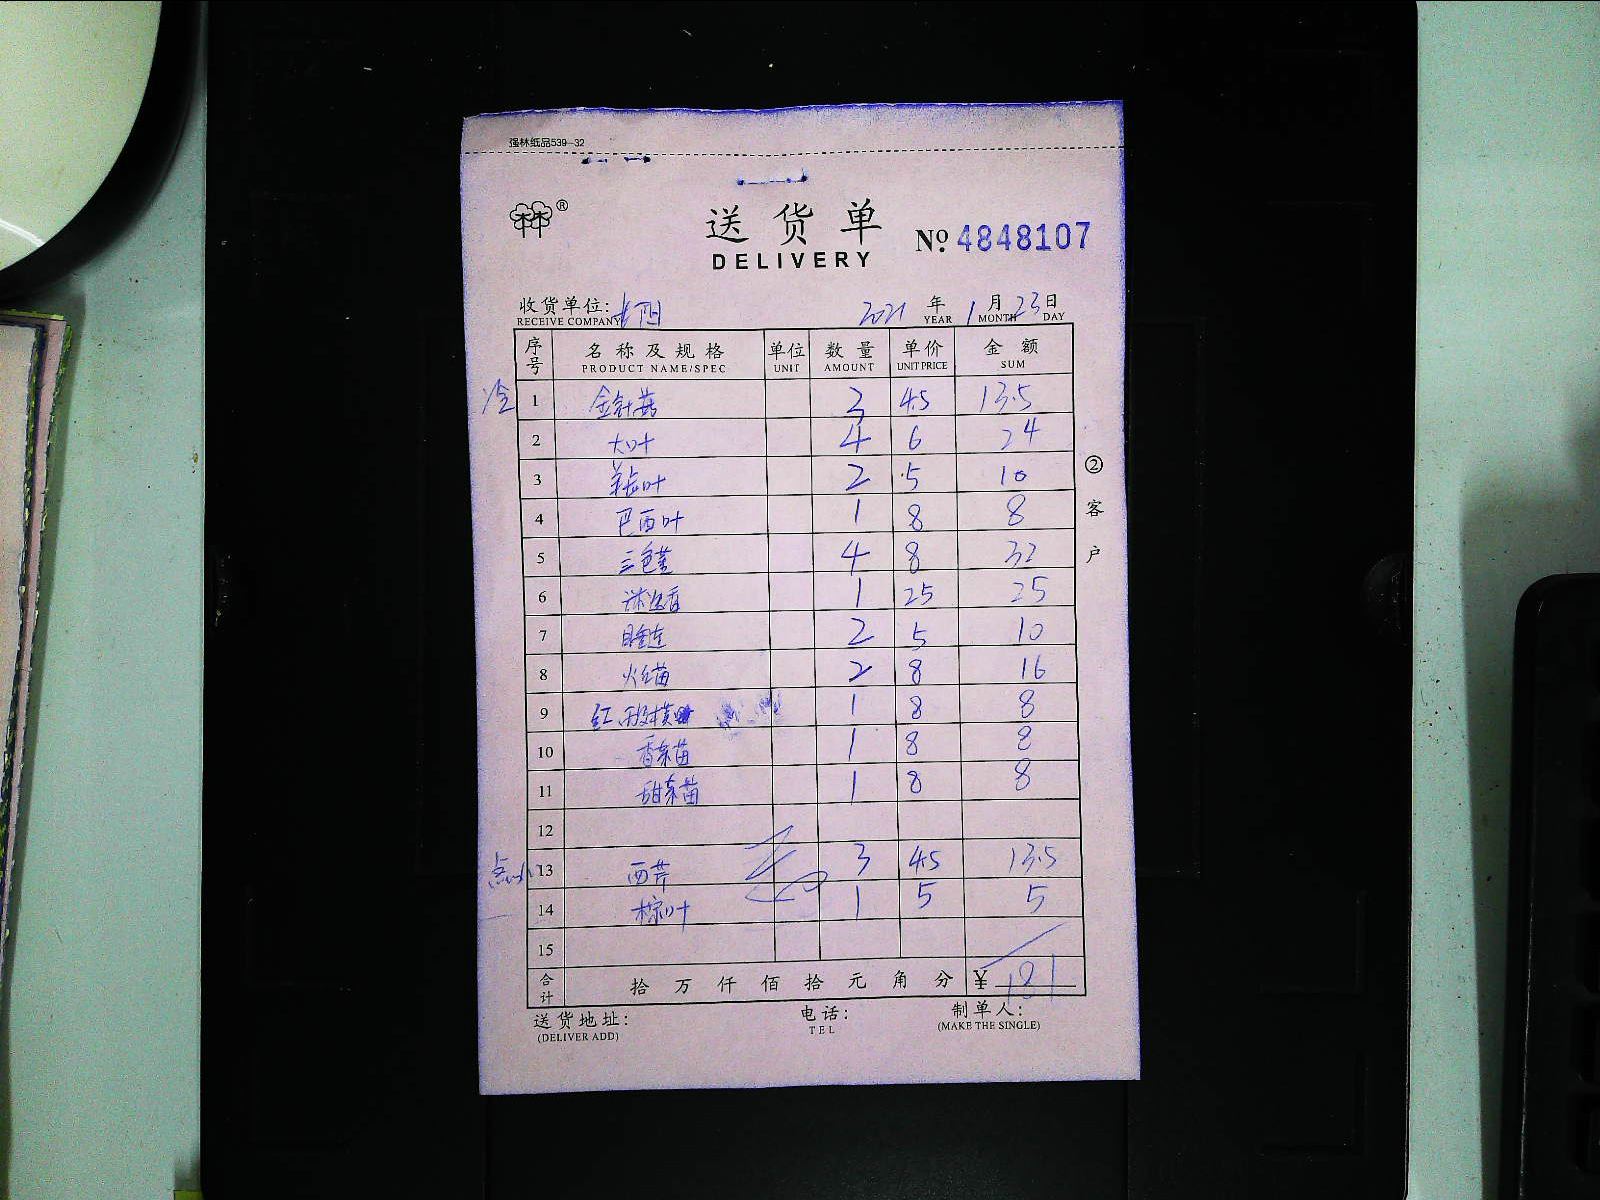 强林纸品539-32
林林®
送货单
DELIVERY
№ 4848107
收货单位: 2021 年 1 月 23 日
RECEIVE COMPANY YEAR MONTH DAY
序号 名称及规格 单位 数量 单价 金额
PRODUCT NAME/SPEC UNIT AMOUNT UNIT PRICE SUM
冷 1 金针菇 3 4.5 13.5
2 大叶 4 6 24
3 叶 2 5 10
4 巴西叶 1 8 8
5 三色堇 4 8 32
6 1 25 25
7 2 5 10
8 火红苗 2 8 16
9 红 1 8 8
10 香菜苗 1 8 8
11 甜菜苗 1 8 8
12
点心 13 西芹 3 4.5 13.5
14 棕叶 1 5 5
15
合计 拾万仟佰拾元角分 ¥ 181
送货地址: 电话: 制单人:
(DELIVER ADD) TEL (MAKE THE SINGLE)
②客户